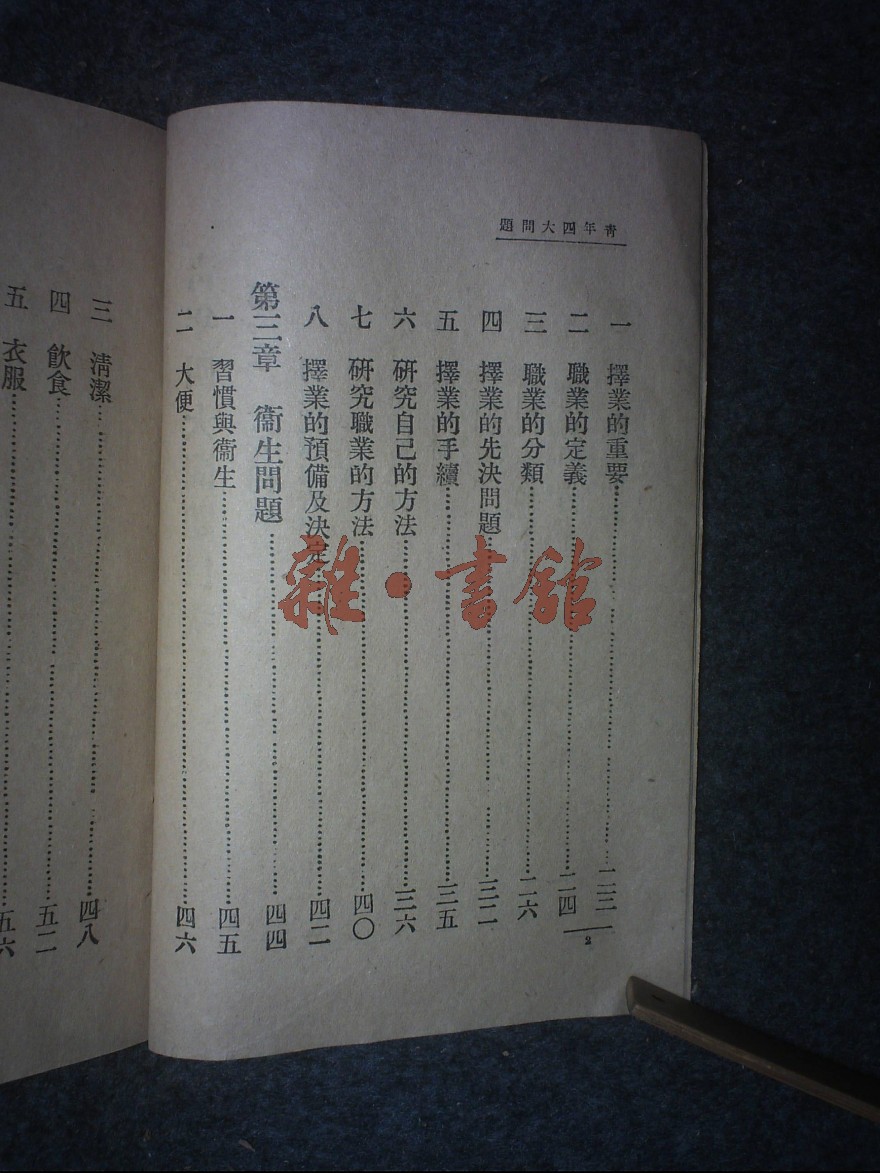 青年四大問題
一 擇業的重要
二 職業的定義……二四
三 職業的分類……二六
四 擇業的先決問題……三二
五 擇業的手續……三五
六 研究自己的方法……三六
七 研究職業的方法……四〇
八 擇業的預備及決定……四二
第三章 衞生問題……四四
一 習慣與衞生……四五
二 大便……四六
2
三 清潔……四八
四 飲食……五二
五 衣服……五六
雜·書館